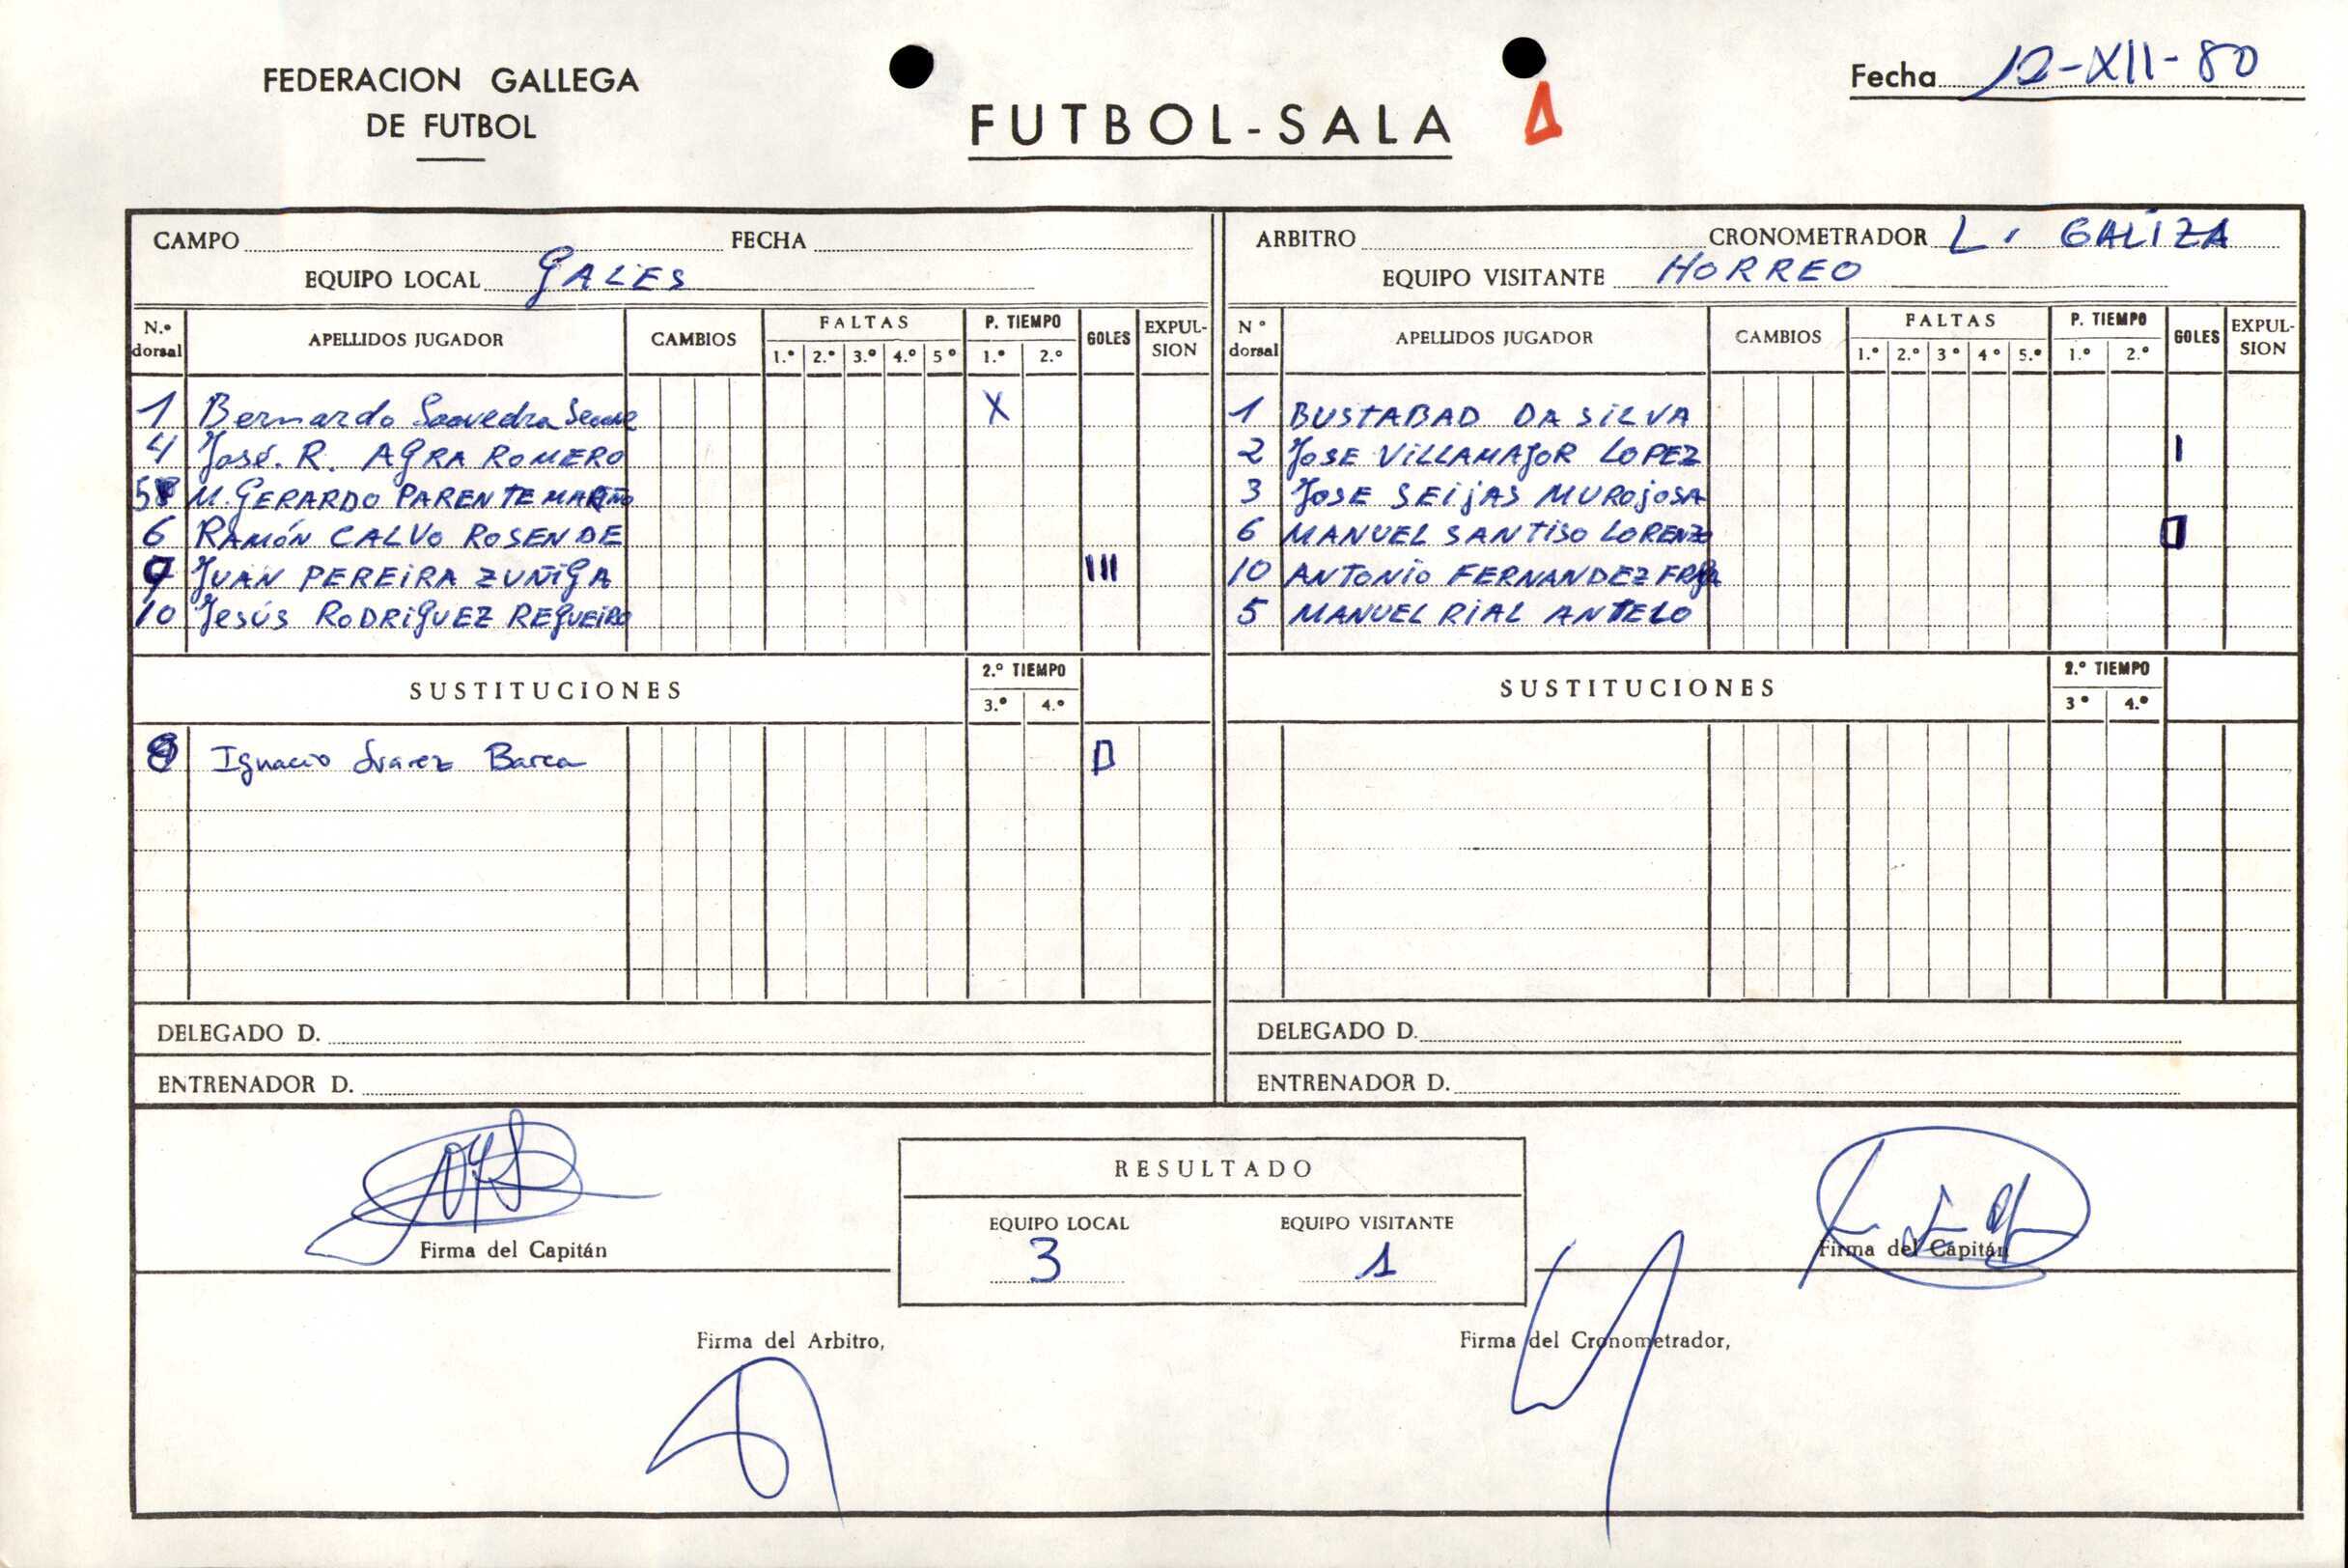 FEDERACION GALLEGA
DE FUTBOL
FUTBOL-SALA
Fecha 12-XII-80
CAMPO FECHA
EQUIPO LOCAL GALES
ARBITRO CRONOMETRADOR L. GALIZA
EQUIPO VISITANTE HORREO
N.º dorsal APELLIDOS JUGADOR CAMBIOS FALTAS 1.º 2.º 3.º 4.º 5º P. TIEMPO 1.º 2.º GOLES EXPULSION
1 Bernardo Saavedra X
4 José. R. AGRA ROMERO
5 M. GERARDO PARENTE MARIÑO
6 RAMÓN CALVO ROSENDE
JUAN PEREIRA ZUÑIGA III
10 Jesús RODRIGUEZ REGUEIRO
SUSTITUCIONES 2.º TIEMPO 3.º 4.º
Ignacio Barca
DELEGADO D.
ENTRENADOR D.
N º dorsal APELLIDOS JUGADOR CAMBIOS FALTAS 1.º 2.º 3º 4º 5.º P. TIEMPO 1.º 2.º GOLES EXPULSION
1 BUSTABAD DA SILVA
2 JOSE VILLAMAJOR LOPEZ I
3 JOSE SEIJAS MUROJOSA
6 MANUEL SANTISO LORENZO
10 ANTONIO FERNANDEZ
5 MANUEL RIAL ANTELO
SUSTITUCIONES 2.º TIEMPO 3º 4.º
DELEGADO D.
ENTRENADOR D.
Firma del Capitán
RESULTADO
EQUIPO LOCAL EQUIPO VISITANTE
3 1
Firma del Capitán
Firma del Arbitro,
Firma del Cronometrador,